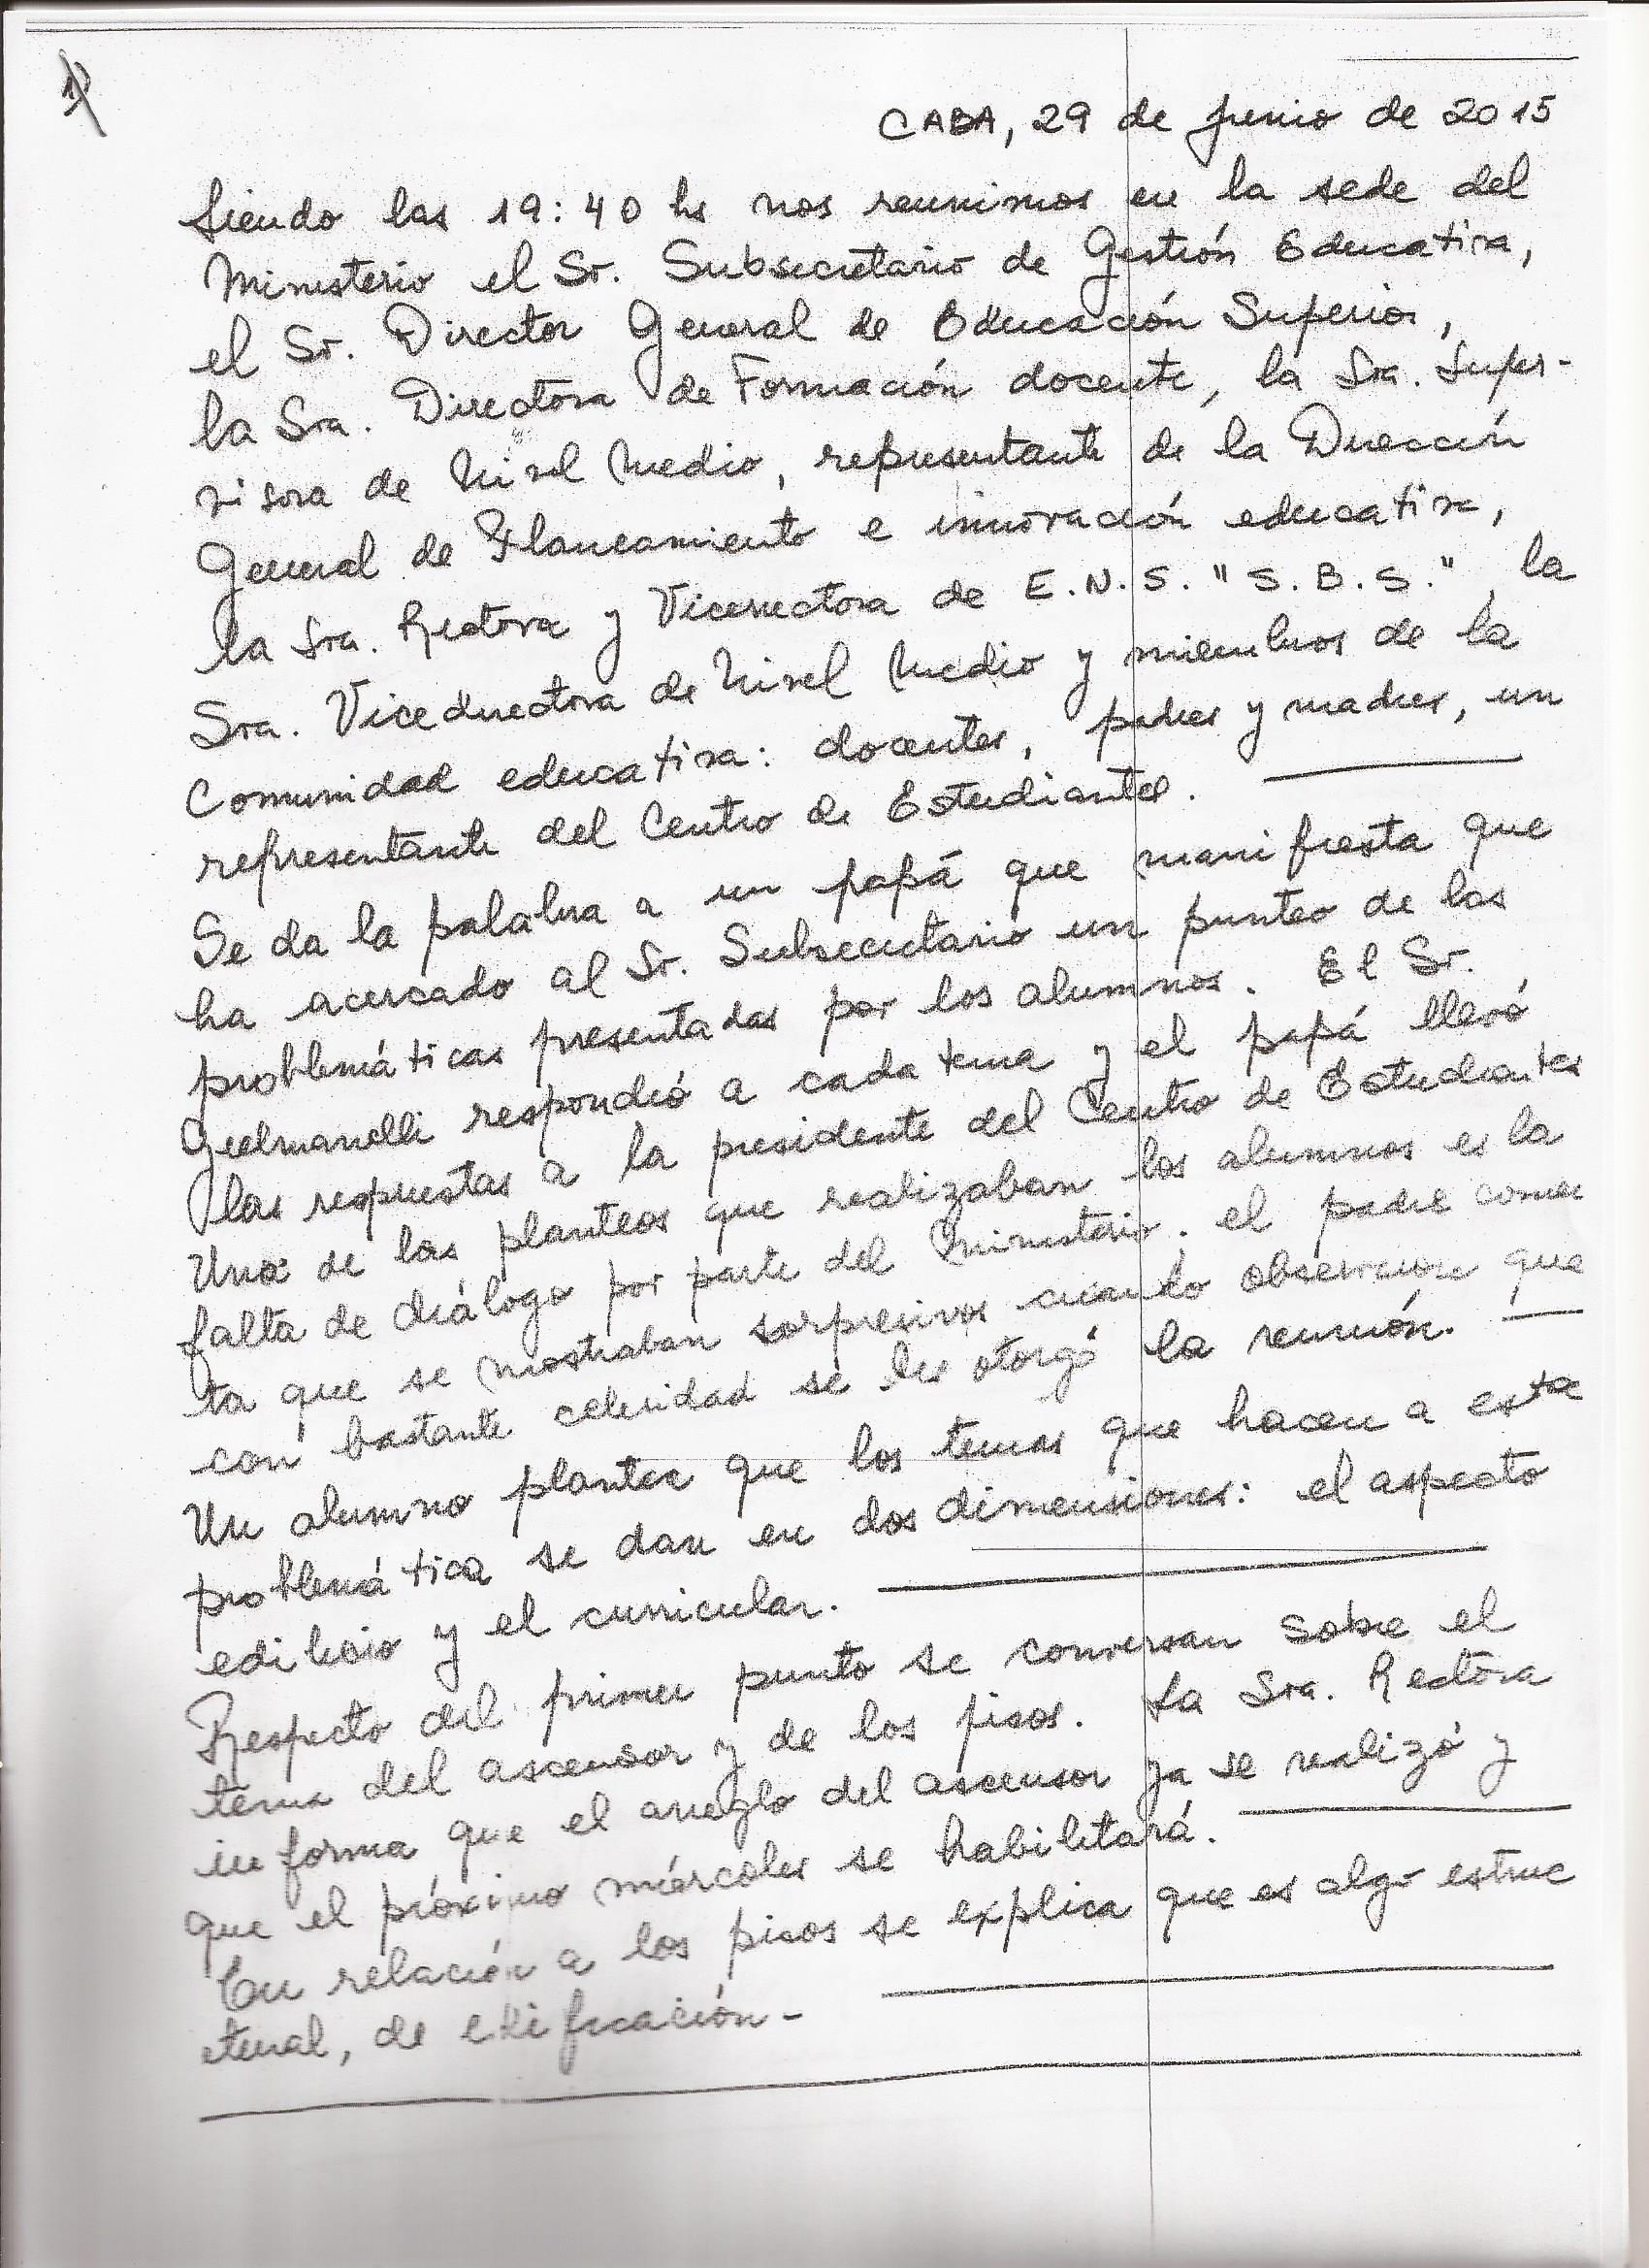 1)
CABA, 29 de junio de 2015
Siendo las 19:40 hs nos reunimos en la sede del
Ministerio el Sr. Subsecretario de Gestión Educativa,
el Sr. Director General de Educación Superior,
la Sra. Directora de Formación docente, la Sra. Super-
visora de Nivel Medio, representante de la Dirección
General de Planeamiento e innovación educativa,
la Sra. Rectora y Vicerrectora de E.N.S. "S.B.S.", la
Sra. Vicedirectora de Nivel Medio y miembros de la
Comunidad educativa: docentes, padres y madres, un
representante del Centro de Estudiantes.
Se da la palabra a un papá que manifiesta que
ha acercado al Sr. Subsecretario un punteo de las
problemáticas presentadas por los alumnos. El Sr.
Guelmanelli respondió a cada tema y el papá llevó
las respuestas a la presidente del Centro de Estudiantes
Uno de los planteos que realizaban los alumnos es la
falta de diálogo por parte del Ministerio. el padre comen
ta que se mostraban sorpresivos cuando observaron que
con bastante celeridad se les otorgó la reunión.
Un alumno plantea que los temas que hacen a esta
problemática se dan en dos dimensiones: el aspecto
edilicio y el curricular.
Respecto del primer punto se conversan sobre el
tema del ascensor y de los pisos. La Sra. Rectora
informa que el arreglo del ascensor ya se realizó y
que el próximo miércoles se habilitará.
En relación a los pisos se explica que es algo estruc
tural, de edificación-